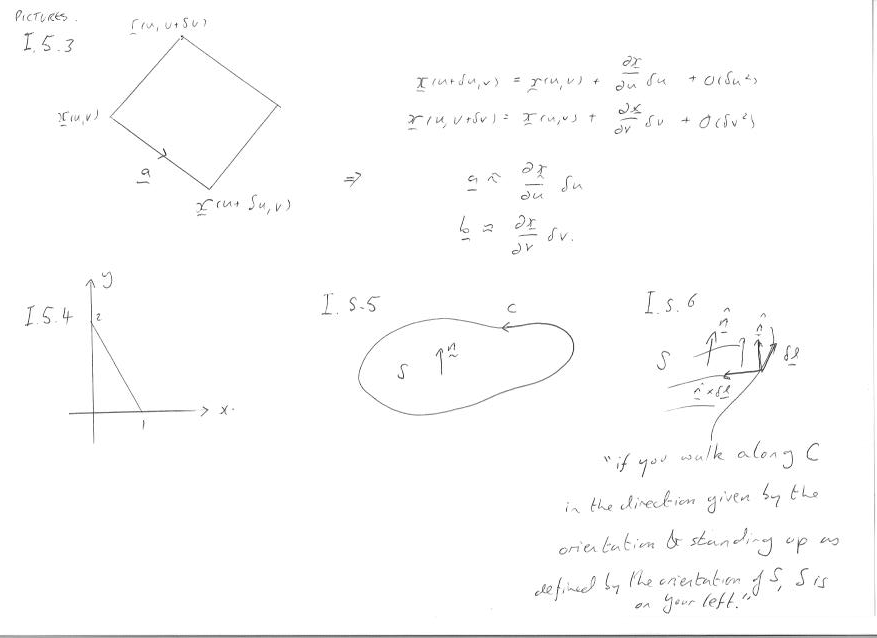 PICTURES.
I.5.3
r(u, v+δv)
x(u,v)
a
x(u+δu,v)
x(u+δu,v) = x(u,v) + ∂x/∂u δu + O(δu²)
x(u,v+δv) = x(u,v) + ∂x/∂v δv + O(δv²)
⇒ a ≈ ∂x/∂u δu
b ≈ ∂x/∂v δv.
I.5.4
y
2
1
x.
I.S.5
C
S
n
I.S.6
S
n̂
n̂
δl
n̂ × δl
"if you walk along C
in the direction given by the
orientation & standing up as
defined by the orientation of S, S is
on your left."